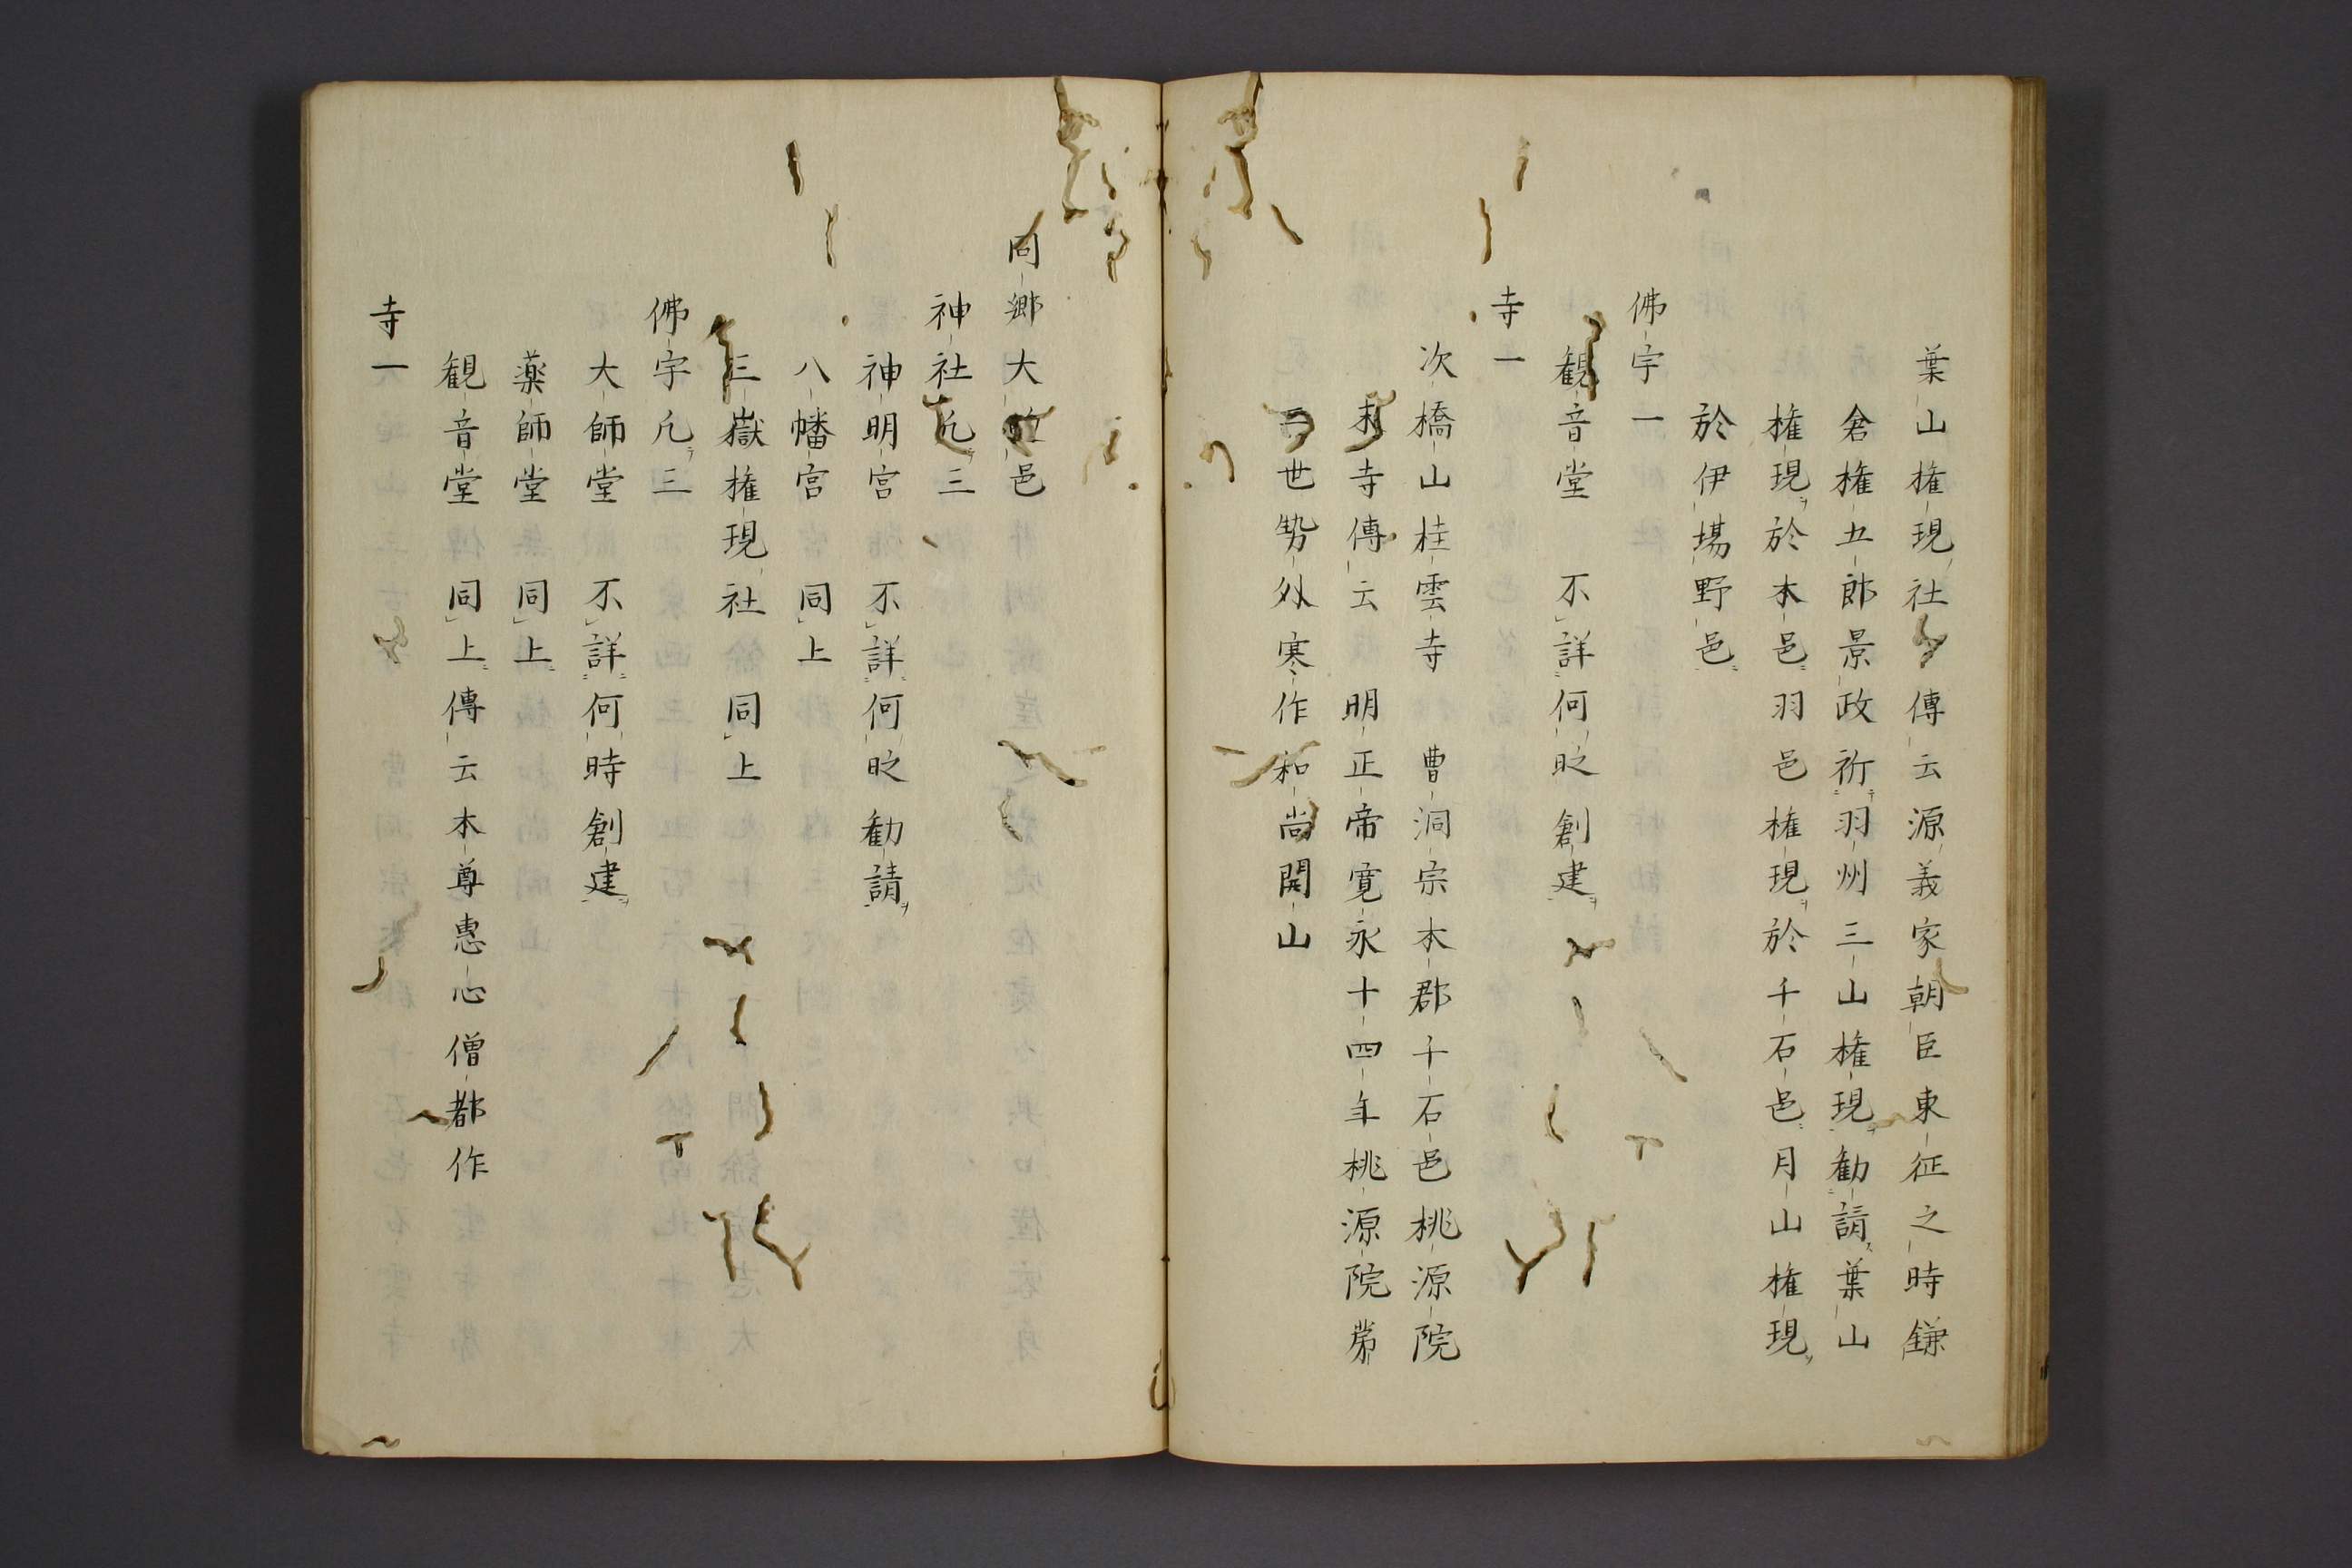 葉山権現社 傳云源義家朝臣東征之時鎌
倉権五郎景政祈羽州三山権現勧請葉山
権現於本邑羽邑権現於千石邑月山権現
於伊場野邑
佛宇一
観音堂 不詳何时創建
寺一
次橋山桂雲寺 曹洞宗本郡千石邑桃源院
末寺傳云 明正帝寛永十四年桃源院第
世勢外寒作和尚開山
同郷大邑
神社凢三
神明宮 不詳何时勧請
八幡宮 同上
三嶽権現社 同上
佛宇凢三
大師堂 不詳何時創建
薬師堂 同上
観音堂 同上傳云本尊恵心僧都作
寺一